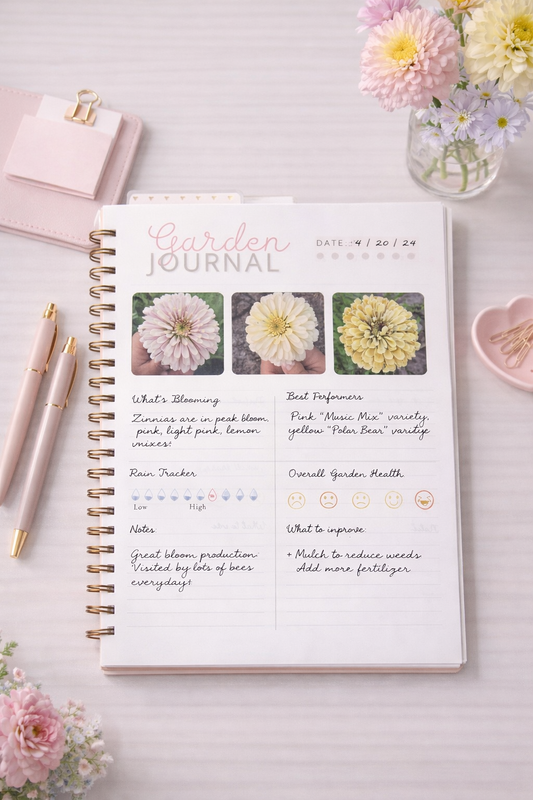 Garden
JOURNAL
DATE.: 4 / 20 / 24
What's Blooming
Zinnias are in peak bloom,
pink, light pink, lemon
mixes!
Best Performers
Pink "Music Mix" variety,
yellow "Polar Bear" varitye
Rain Tracker
Low
High
Overall Garden Health
Notes
Great bloom production.
Visited by lots of bees
everyday!
What to improve:
+ Mulch to reduce weeds
Add more fertilizer